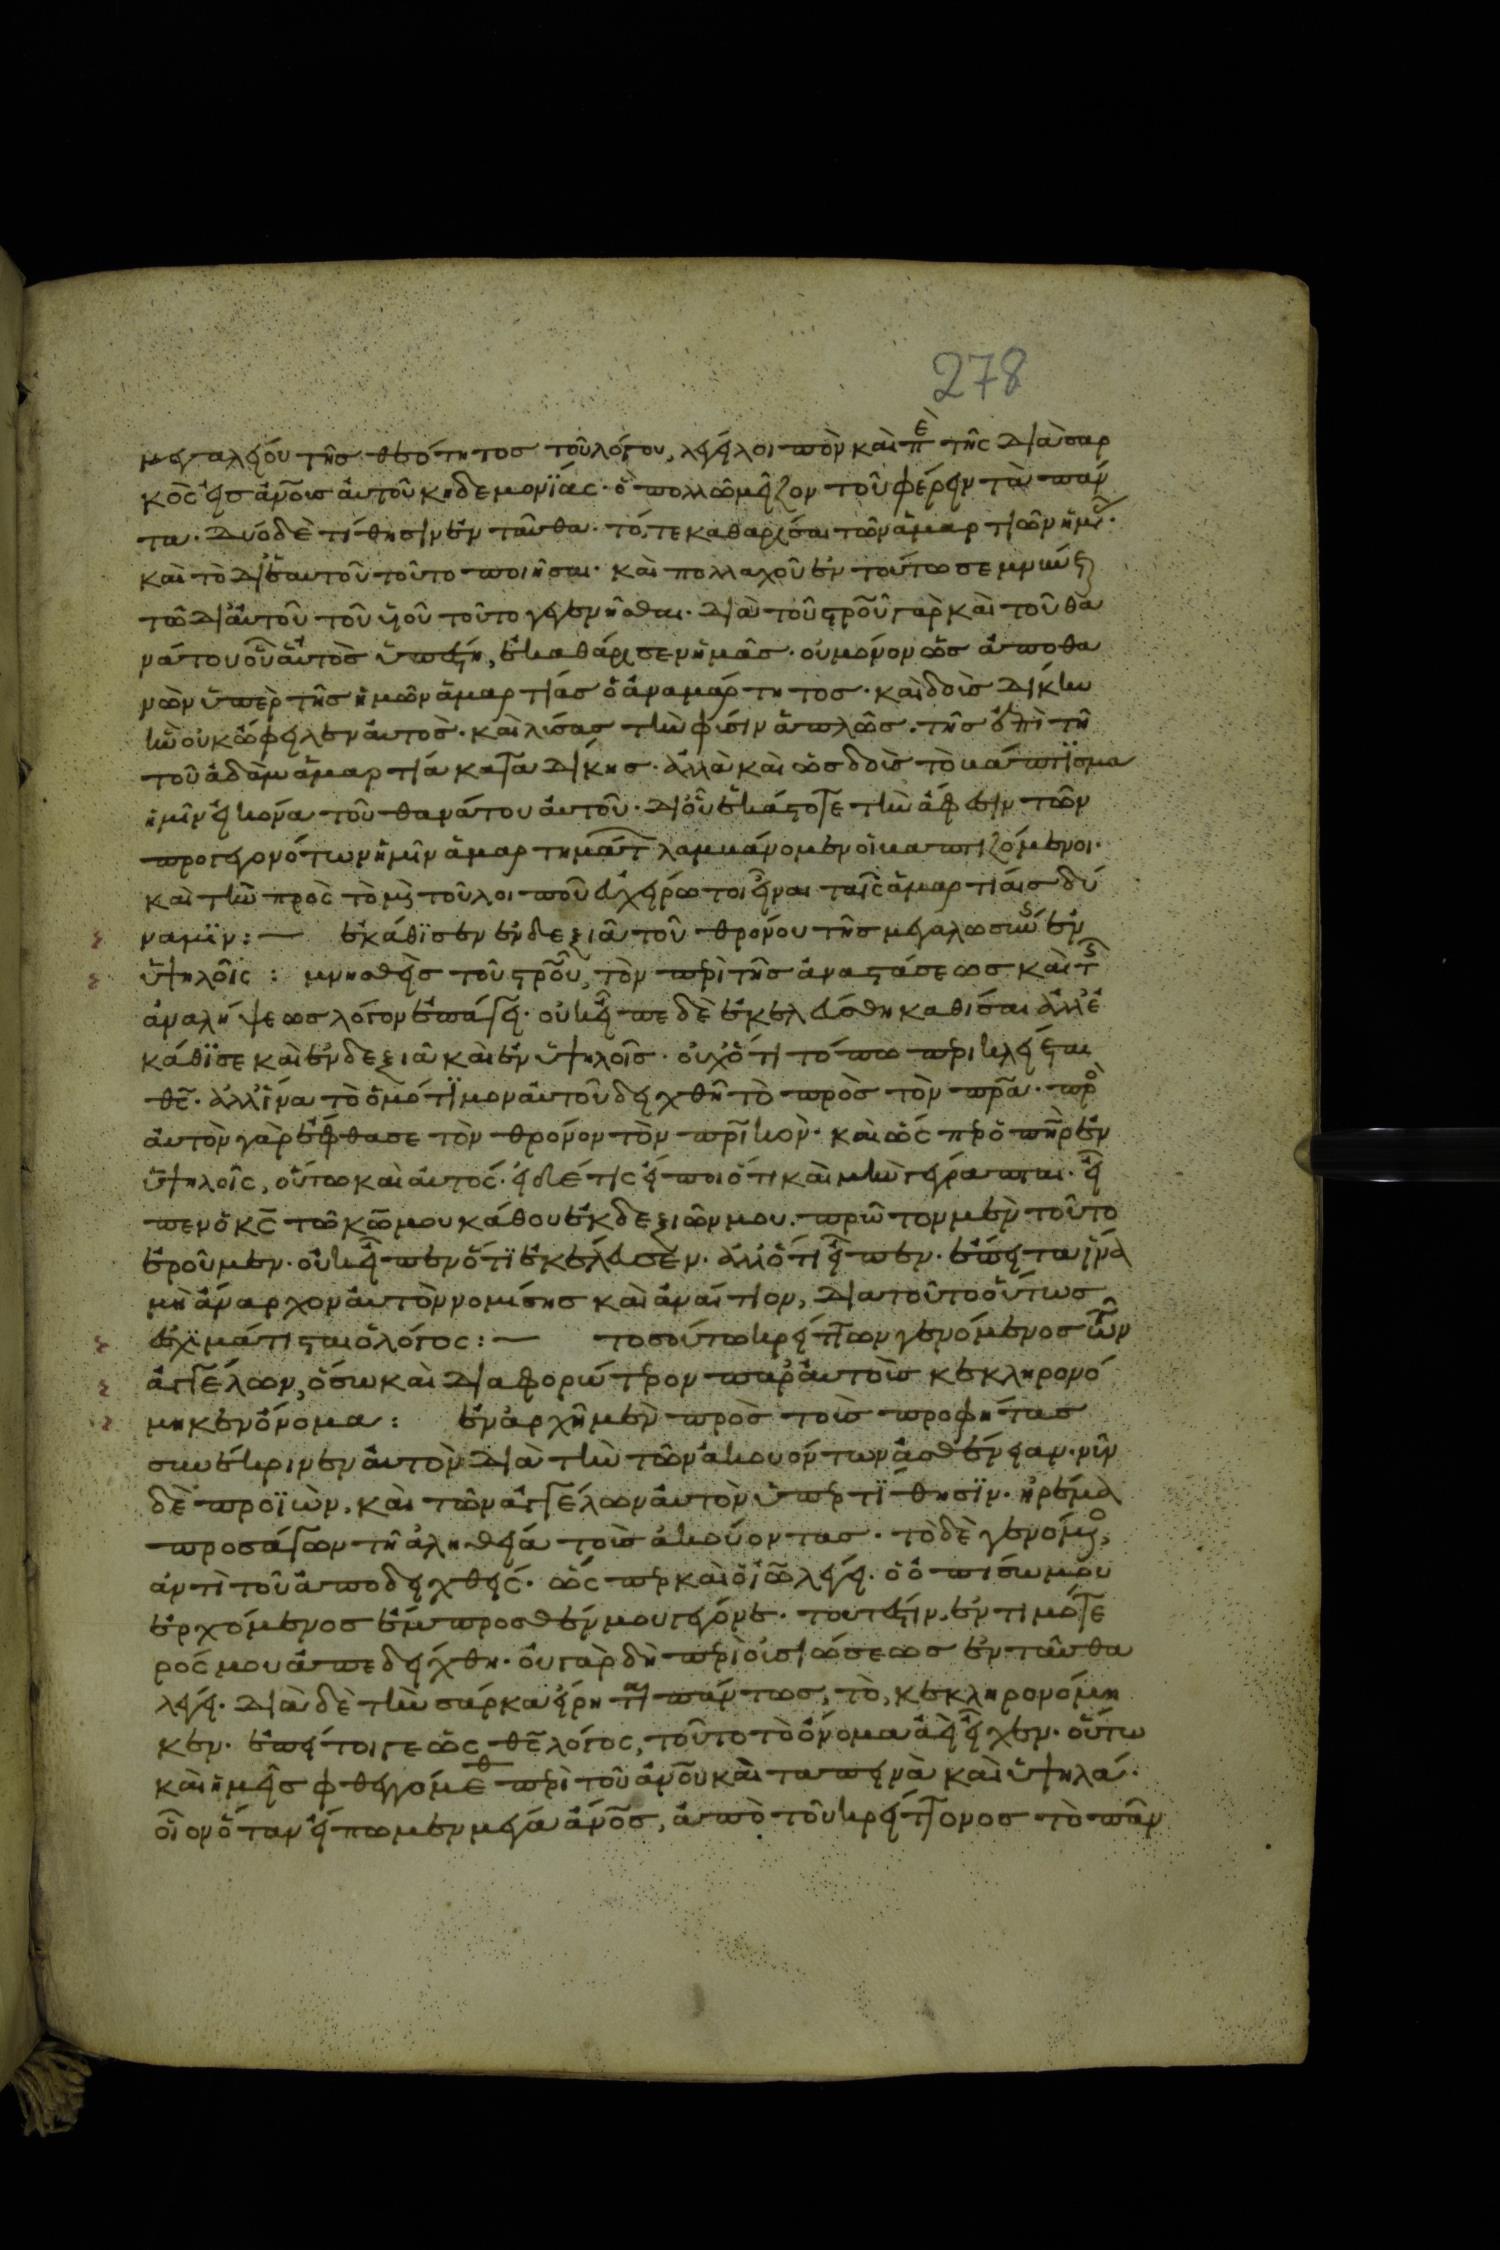 278
μεγαλείου τῆς θεότητος τοῦ λόγου, λέγει λοιπὸν καὶ πὲ τῆς διὰ σαρ
κὸς εἰς ἀνο̅υς αὐτοῦ κηδεμονΐας· ὃ πολλῶ μεῖζον τοῦ φέρειν τὰ πάν
τα· δύο δὲ τίθησιν ἐνταῦθα· τό, τε καθαρίσαι τῶν ἁμαρτιῶν ἡμ
καὶ τὸ δι' ἑαυτοῦ τοῦτο ποιῆσαι· καὶ πολλαχοῦ ἐν τούτω σεμνύνε
τῶ δι' αὐτοῦ τοῦ υἱοῦ τοῦτο γεγενῆσθαι· διὰ τοῦ σρο̅ῦ γὰρ καὶ τοῦ θα
νάτου οὗ αὐτὸς ὑπέστη, ἐκαθάρισεν ἡμᾶς· οὐ μόνον ὡς ἀποθα
νὼν ὑπὲρ τῆς ἡμῶν ἁμαρτίας ὁ ἀναμάρτητος· καὶ δοὺς δίκην
ἣν οὐκ ὤφειλεν αὐτὸς· καὶ λύσας τὴν φύσιν ἁπλῶς· τῆς ἐπὶ τῆ
τοῦ ἀδὰμ ἁμαρτία καταδίκης· ἀλλὰ καὶ ὡς δοὺς τὸ βάπτϊσμα
ἡμῖν εἰκόνα τοῦ θανάτου αὐτοῦ· δι' οὗ ἑκάστοτε τὴν ἄφεσιν τῶν
προγεγονότων ἡμῖν ἁμαρτημάτ λαμβάνομεν οἱ βαπτιζόμενοι·
καὶ τὴν πρὸς τὸ μὴ τοῦ λοιποῦ ἀχείρωτοι εἶναι ταῖς ἁμαρτίαις δύ
ναμϊν:— ἐκάθϊσεν ἐν δεξιᾶ τοῦ θρόνου τῆς μεγαλωσύνης ἐν
ὑψηλοῖς: μνησθεὶς τοῦ σρο̅ῦ, τὸν περὶ τῆς ἀναστάσεως καὶ τ
ἀναλήψεως λόγον ἐπάγει· οὐκ εἶπε δὲ ἐκελεύσθη καθίσαι ἀλλ' ἐ
κάθϊσε καὶ ἐν δεξιᾶ καὶ ἐν ὑψηλοῖς· οὐχ ὅτι τόπω περικλείεται
θς̅· ἀλλ' ἵνα τὸ ὁμότϊμον αὐτοῦ δειχθῆ τὸ πρὸς τὸν πρα̅· πρὸ
αὐτὸν γὰρ ἔφθασε τὸν θρόνον τὸν πρϊκὸν· καὶ ὡς περ ὁ πη̅ρ ἐν
ὑψηλοῖς, οὕτω καὶ αὐτὸς· εἰ δέ τις εἴποι ὅτι καὶ μὴν γέγραπται· εἶ
πεν ὁ κς̅ τῶ κω̅ μου κάθου ἐκ δεξιῶν μου· πρῶτον μὲν τοῦτο
ἐροῦμεν· οὐκ εἶπεν ὅτϊ ἐκέλευσεν· ἀλλ' ὅτι εἶπεν· ἔπειτα ἵνα
μὴ ἄναρχον αὐτὸν νομίσης καὶ ἀναίτιον, διατοῦτο οὕτως
ἐσχϊμάτισται ὁ λόγος:— τοσούτω κρείττων γενόμενος τῶν
ἀγγέλων, ὅσω καὶ διαφορώτερον παρ' αὐτοὺς κεκληρονό
μηκεν ὄνομα: ἐν ἀρχῆ μὲν πρὸς τοὺς προφήτας
συνέκρινεν αὐτὸν διὰ τὴν τῶν ἀκουόντων ἀσθένειαν· νῦν
δὲ προϊὼν, καὶ τῶν ἀγγέλων αὐτὸν ὑπερτΐθησϊν· ἠρέμα
προσάγων τῆ ἀληθεία τοὺς ἀκούοντας· τὸ δὲ γενόμ,
ἀντὶ τοῦ ἀποδειχθεὶς· ὥς περ καὶ ὁ ἰω̅ λέγει· ὁ ὀπίσω μου
ἐρχόμενος ἔμπροσθέν μου γέγονε· τουτέστιν ἐντιμότε
ρός μου ἀπεδείχθη· οὐ γὰρ δὴ περὶ οὐσιώσεως ἐνταῦθα
λέγει· διὰ δὲ τὴν σάρκα εἴρηται πάντως, τὸ, κεκληρονόμη
κεν· ἐπείτοιγε ὡς θς̅ λόγος, τοῦτο τὸ ὄνομα ἀεὶ εἶχεν· οὕτω
καὶ ἡμεῖς φθεγγόμεθ περὶ τοῦ ἀνο̅υ καὶ ταπεινὰ καὶ ὑψηλά·
οἷον ὅταν εἴπωμεν μέγα ἄνο̅ς, ἀπὸ τοῦ κρείττονος τὸ πᾶν